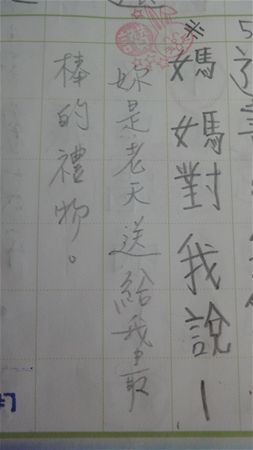 ※媽媽對我說—
妳是老天送給我最
棒的禮物。